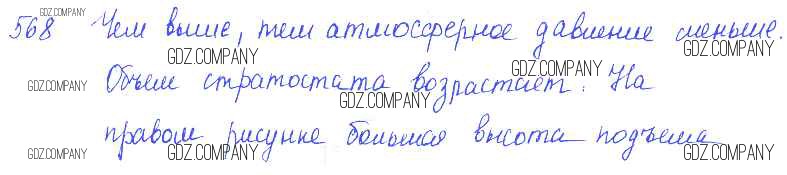 568 Чем выше, тем атмосферное давление меньше.
Объем стратостата возрастает. На
правом рисунке большая высота подъема
GDZ.COMPANY
GDZ.COMPANY
GDZ.COMPANY
GDZ.COMPANY
GDZ.COMPANY
GDZ.COMPANY
GDZ.COMPANY
GDZ.COMPANY
GDZ.COMPANY
GDZ.COMPANY